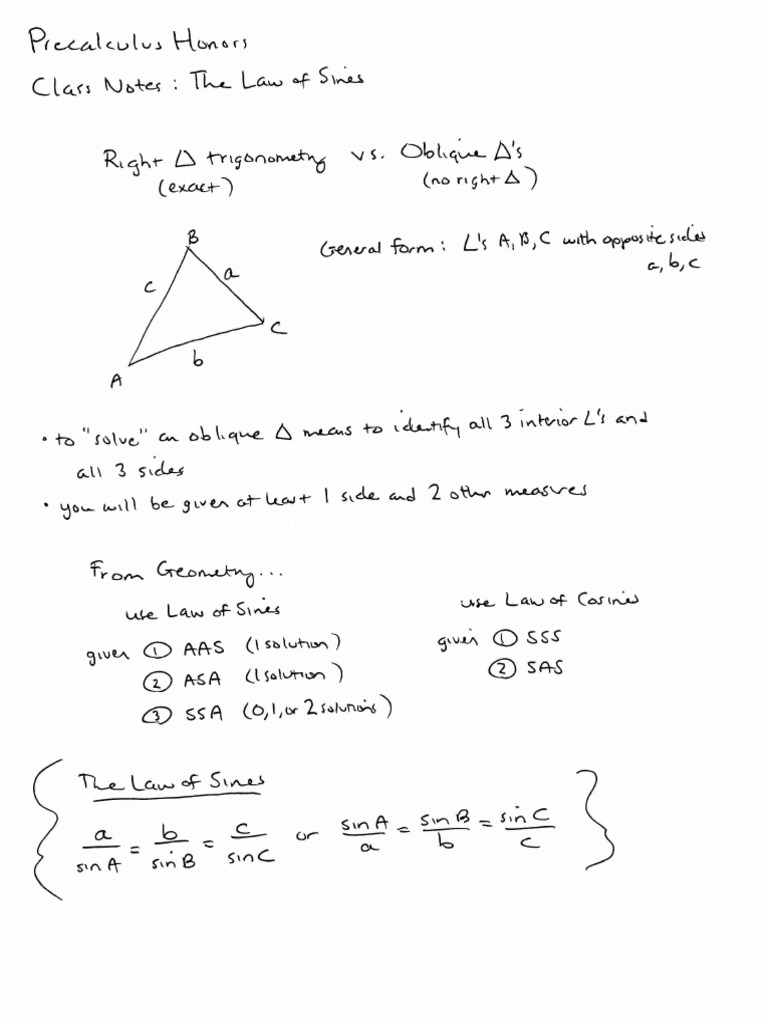 Precalculus Honors
Class Notes: The Law of Sines
Right △ trigonometry vs. Oblique △'s
(exact) (no right △)
B
General form: ∠'s A, B, C with opposite sides
a, b, c
c a
C
b
A
• to "solve" an oblique △ means to identify all 3 interior ∠'s and
all 3 sides
• you will be given at least 1 side and 2 other measures
From Geometry...
use Law of Sines use Law of Cosines
given ① AAS (1 solution) given ① SSS
② ASA (1 solution) ② SAS
③ SSA (0, 1, or 2 solutions)
The Law of Sines
a/sin A = b/sin B = c/sin C or sin A/a = sin B/b = sin C/c